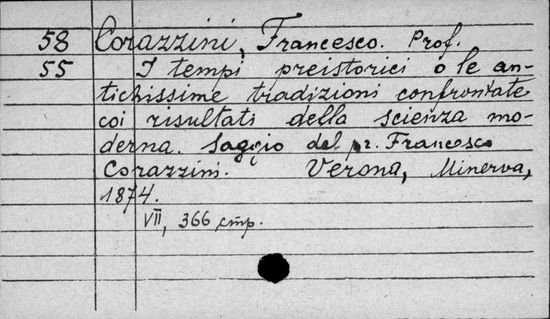 58 Corazzini, Francesco. Prof.
55 I tempi preistorici o le an-
tichissime tradizioni confrontate
coi risultati della scienza mo-
derna. Saggio del pr. Francesco
Corazzini. Verona, Minerva,
1874.
VII, 366 стр.